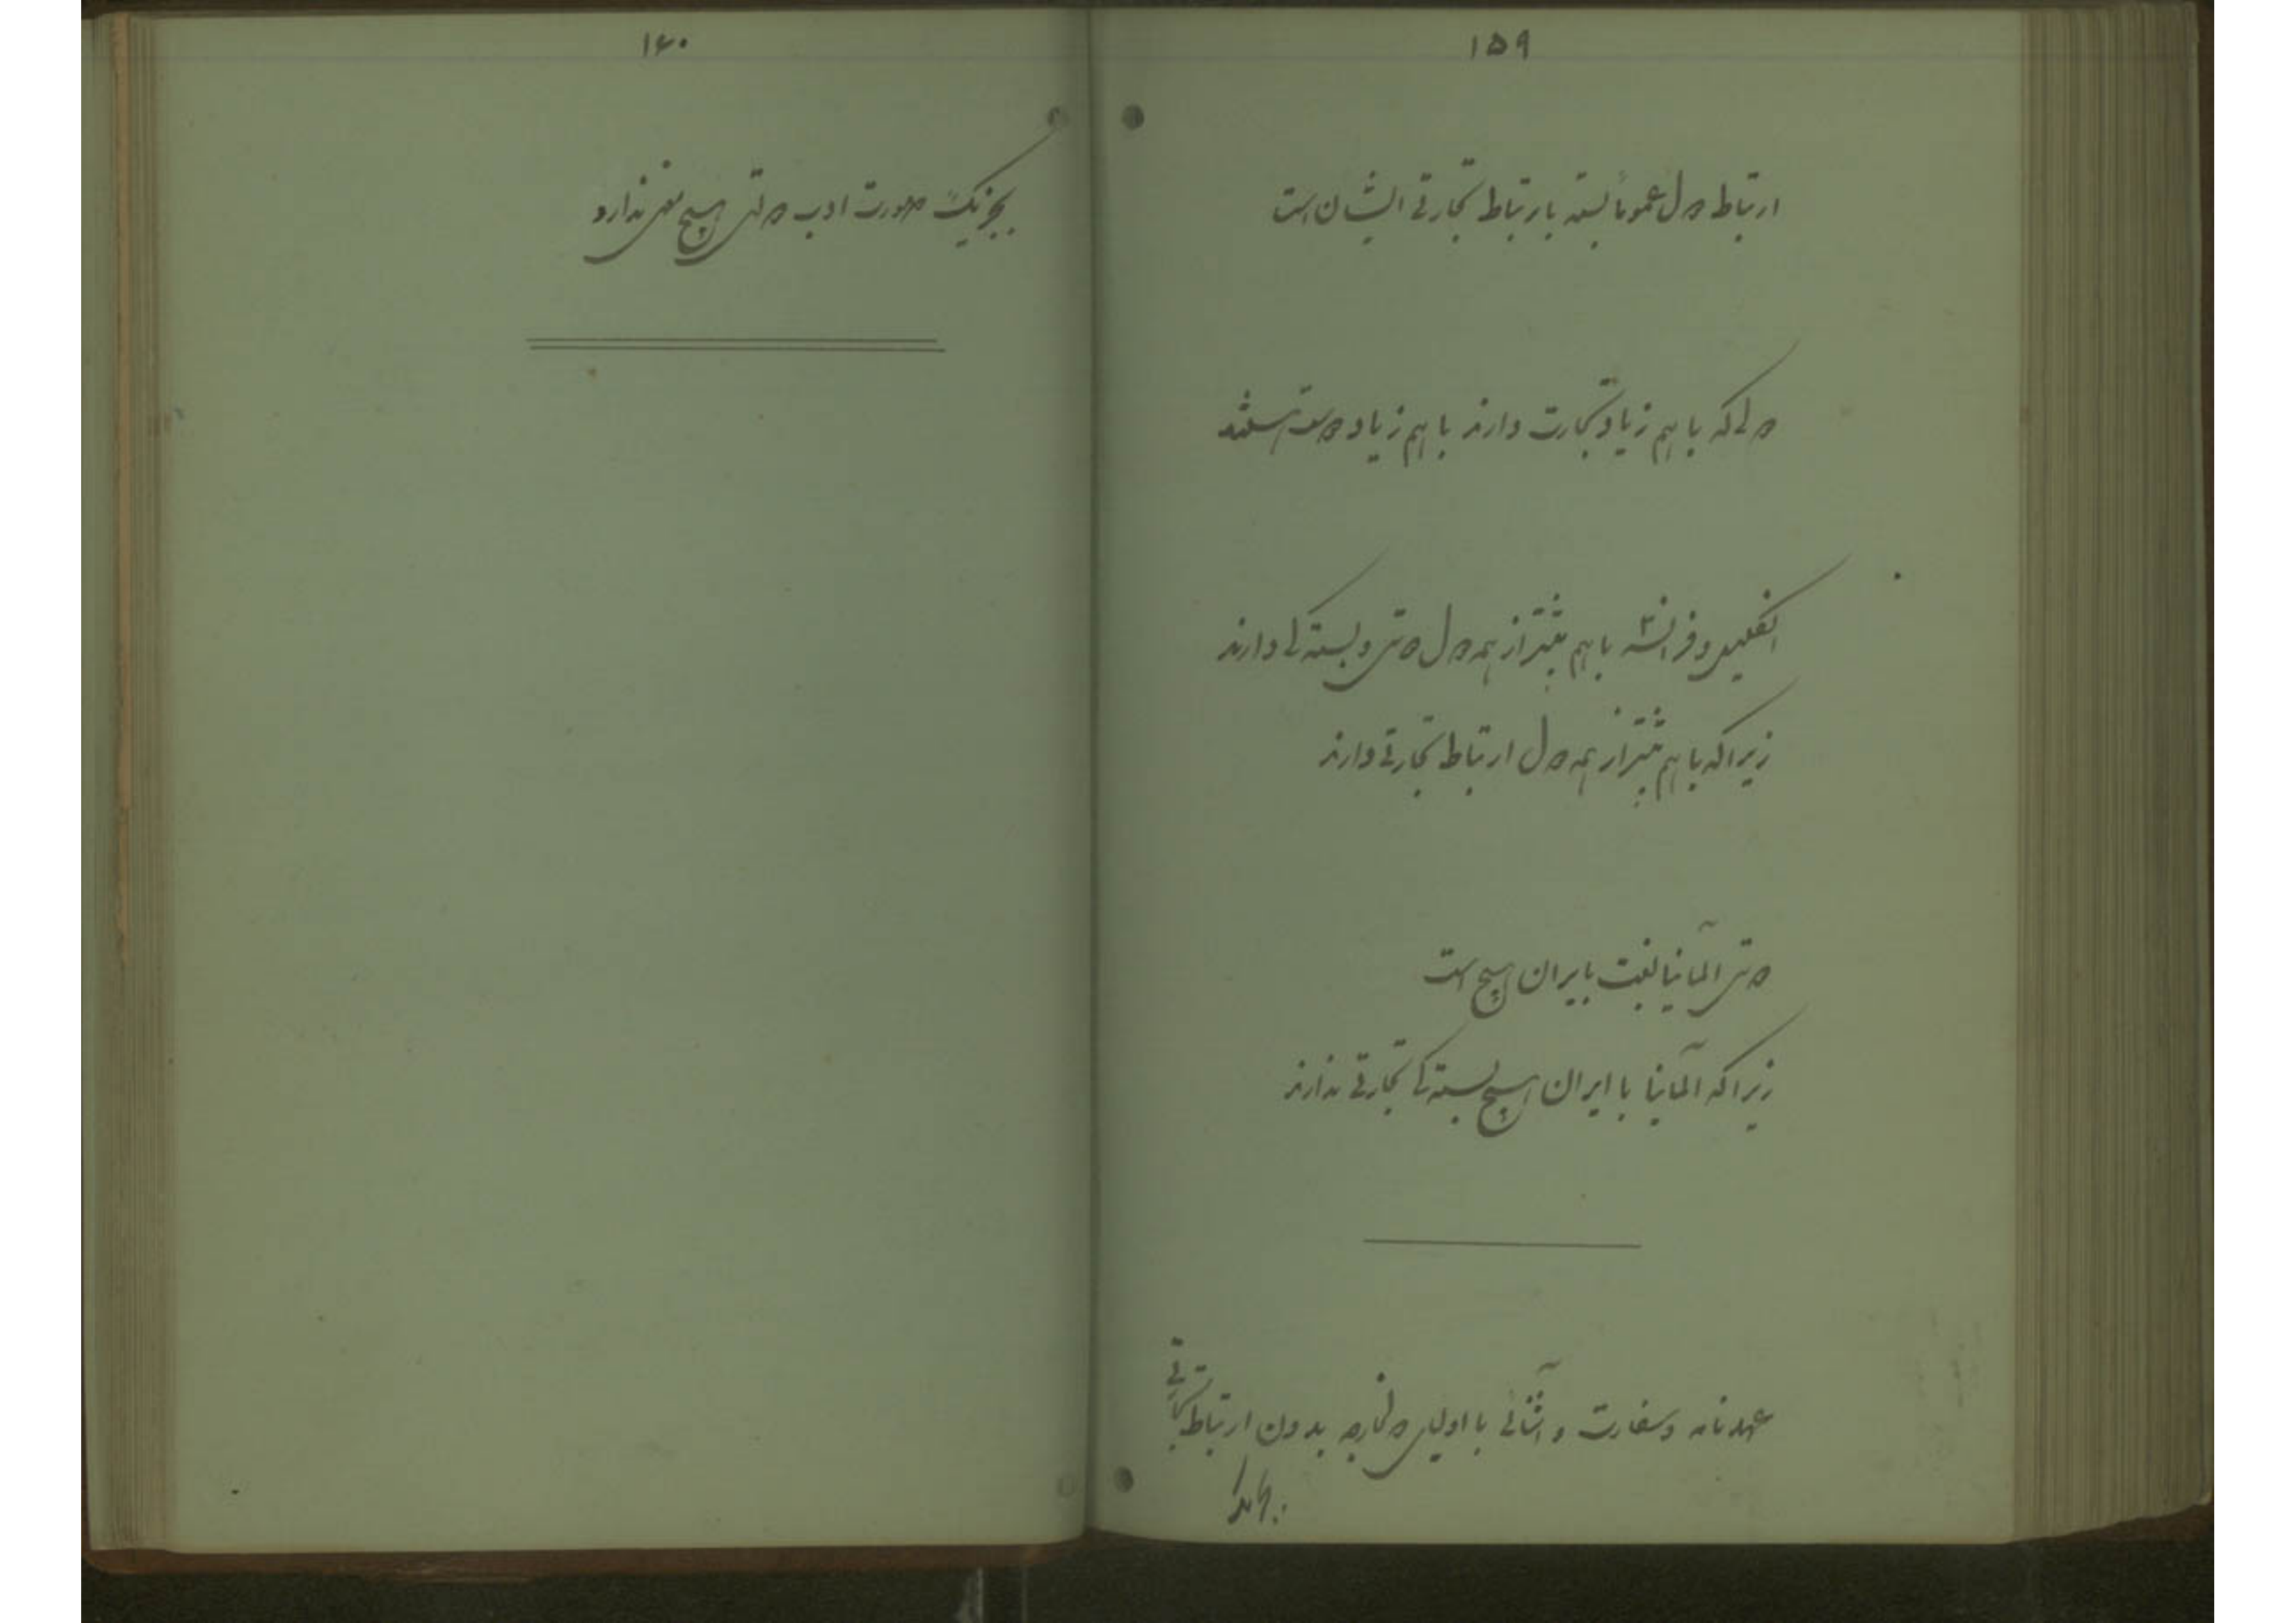 ۱۵۹
ارتباط دول عموماً بسته بارتباط تجارتی ایشان است
دولی که با هم زیاد تجارت دارند با هم زیاد دوست هستند
انگلیس و فرانسه با هم بیشتر از همه دول دوستی و بستگی دارند
زیرا که با هم بیشتر از همه دول ارتباط تجارتی دارند
دوستی آلمانیا نسبت بایران هیچ است
زیرا که آلمانیا با ایران هیچ بستگی تجارتی ندارند
عهدنامه و سفارت و آشنائی با اولیای دول خارجه بدون ارتباط تجارتی
۱۶۰
بجز یک صورت ادب دولتی هیچ معنی ندارد